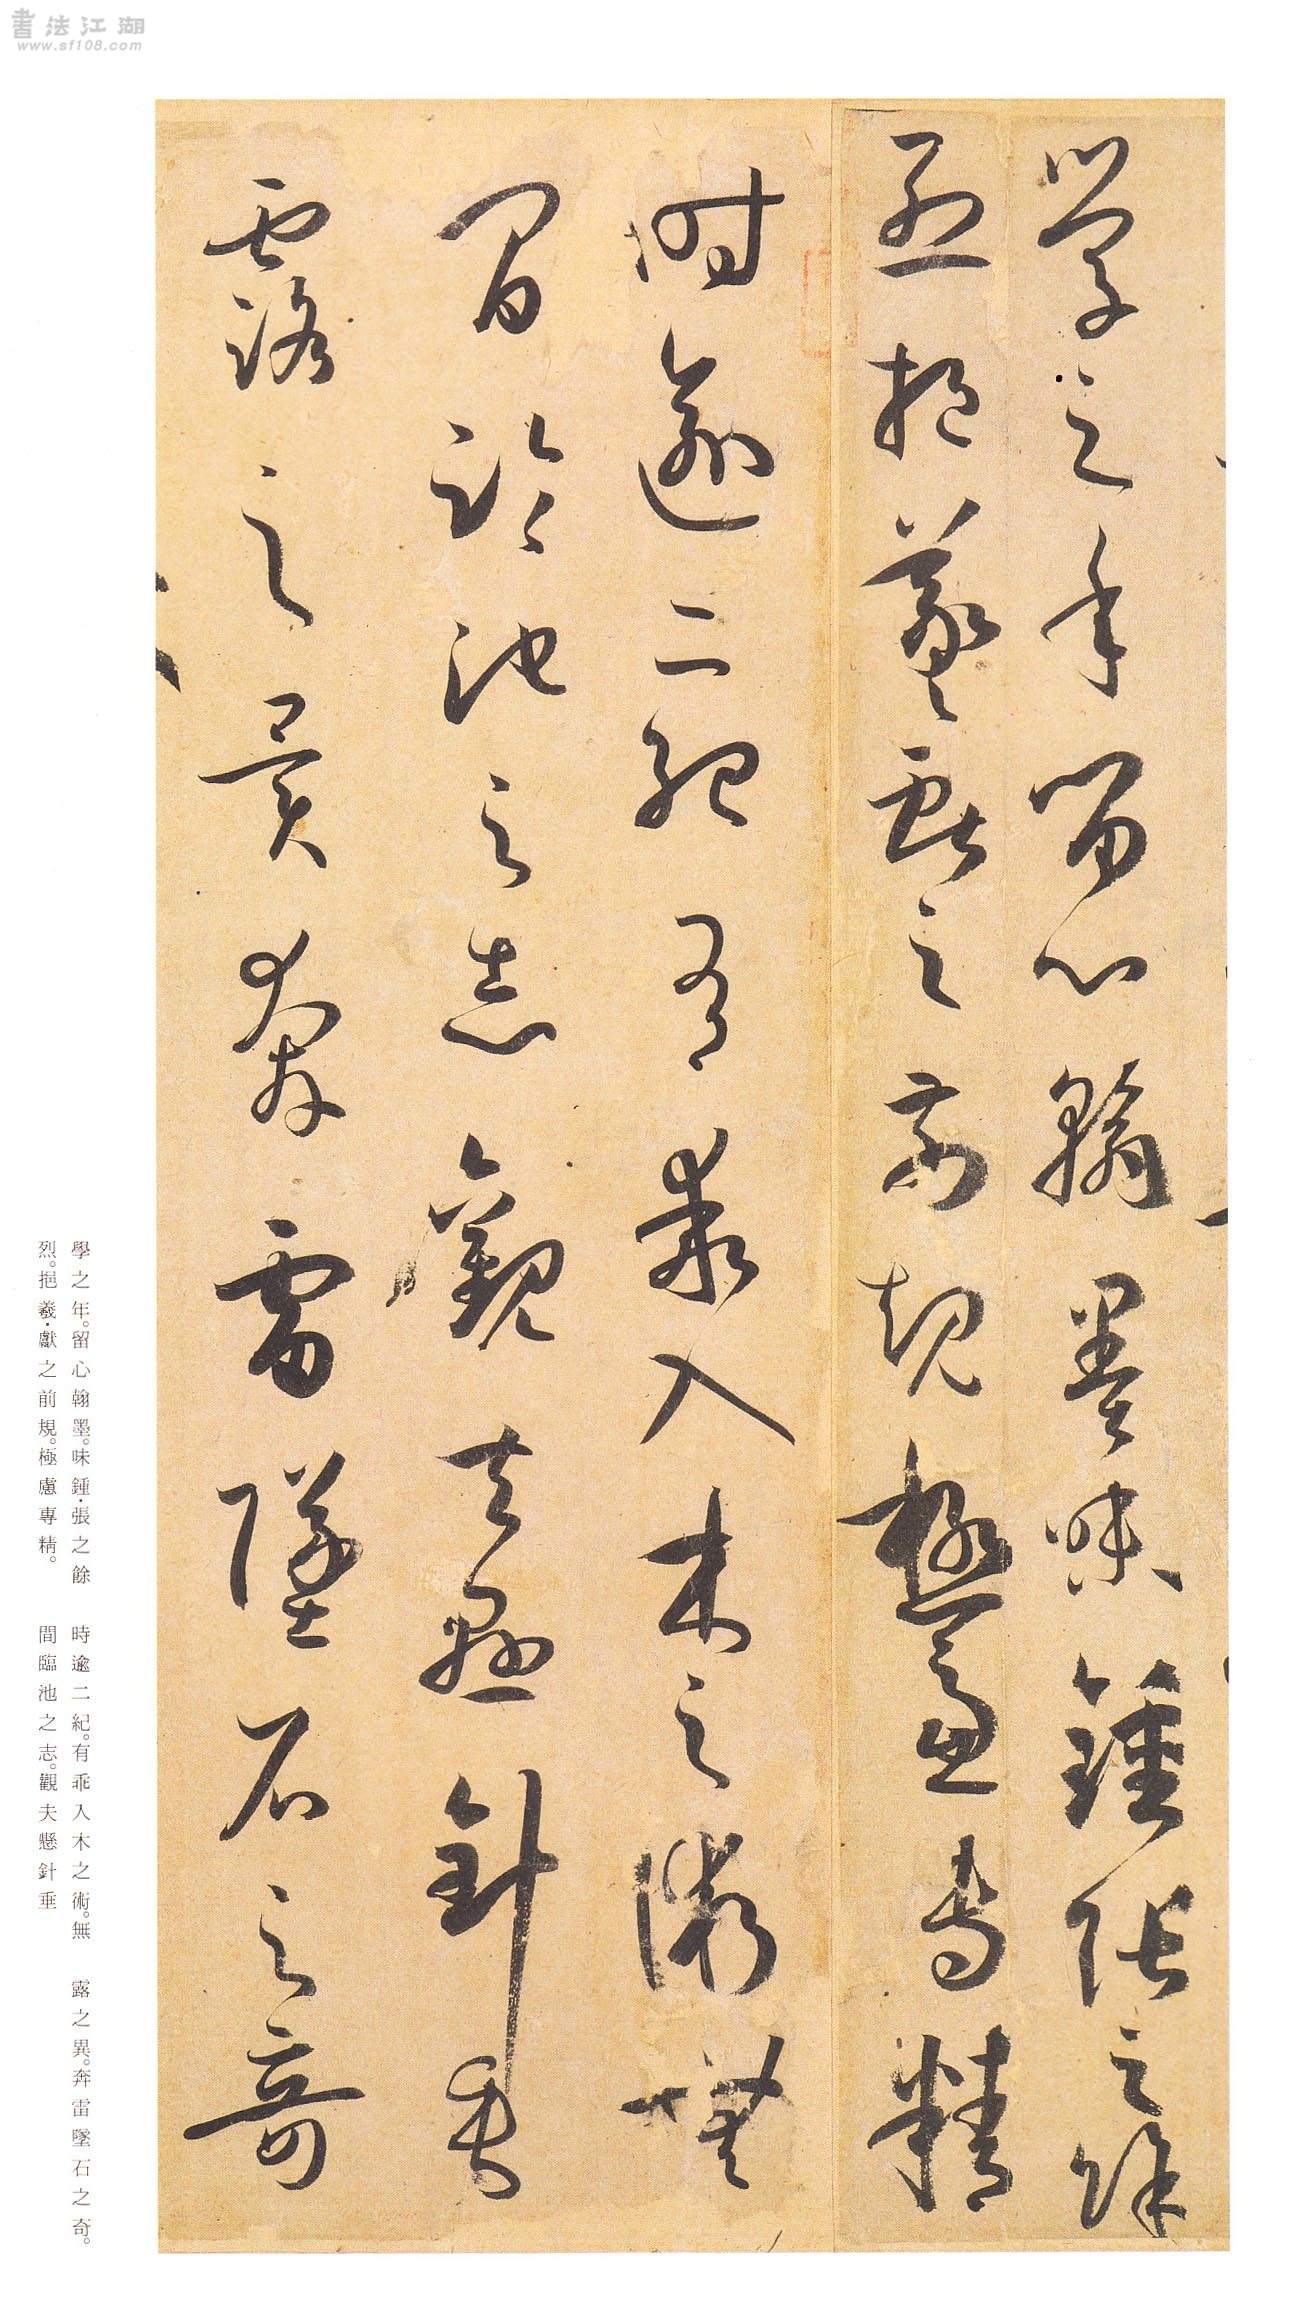 書法江湖
www.sf108.com
學之年留心翰墨味鍾張之餘
烈挹羲獻之前規極慮專精
時逾二紀有乖入木之術無
間臨池之志觀夫懸針垂
露之異奔雷墜石之奇
學之年。留心翰墨。味鍾·張之餘
烈。挹羲·獻之前規。極慮專精。
時逾二紀。有乖入木之術。無
間臨池之志。觀夫懸針垂
露之異。奔雷墜石之奇。